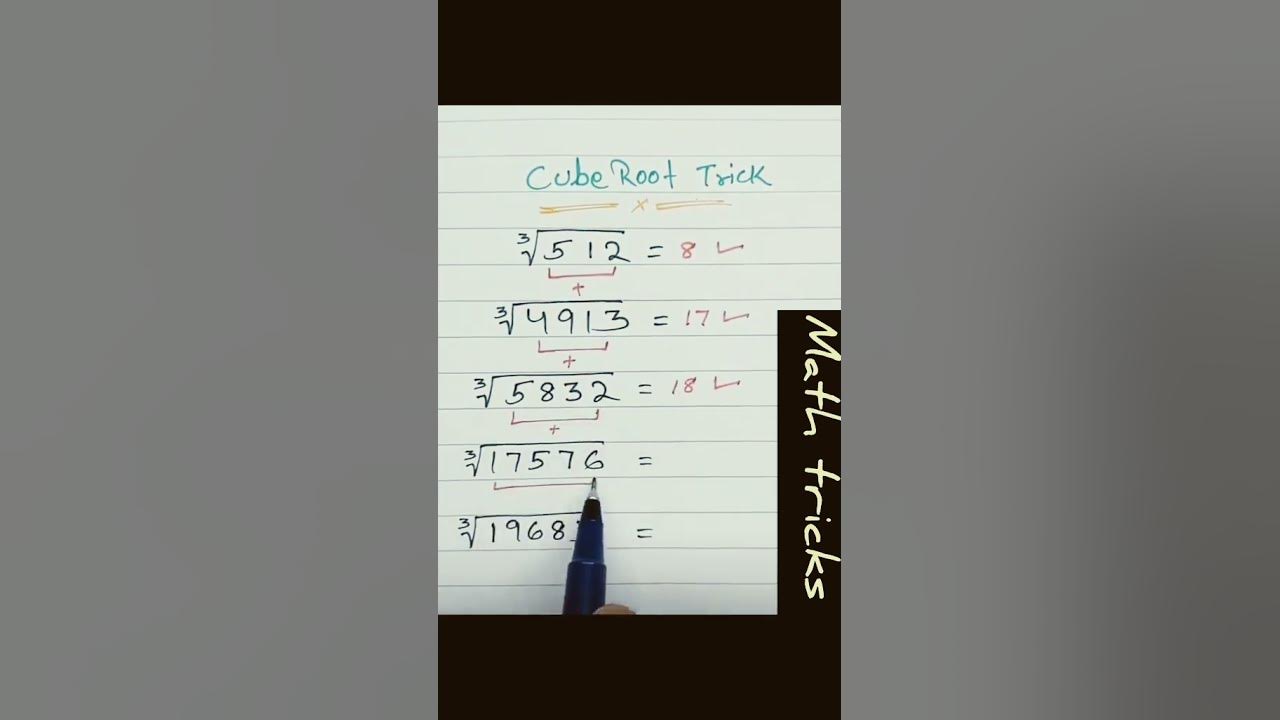 Cube Root Trick
x
∛512 = 8 ✓
+
∛4913 = 17 ✓
+
∛5832 = 18 ✓
+
∛17576 =
∛1968 =
Math tricks